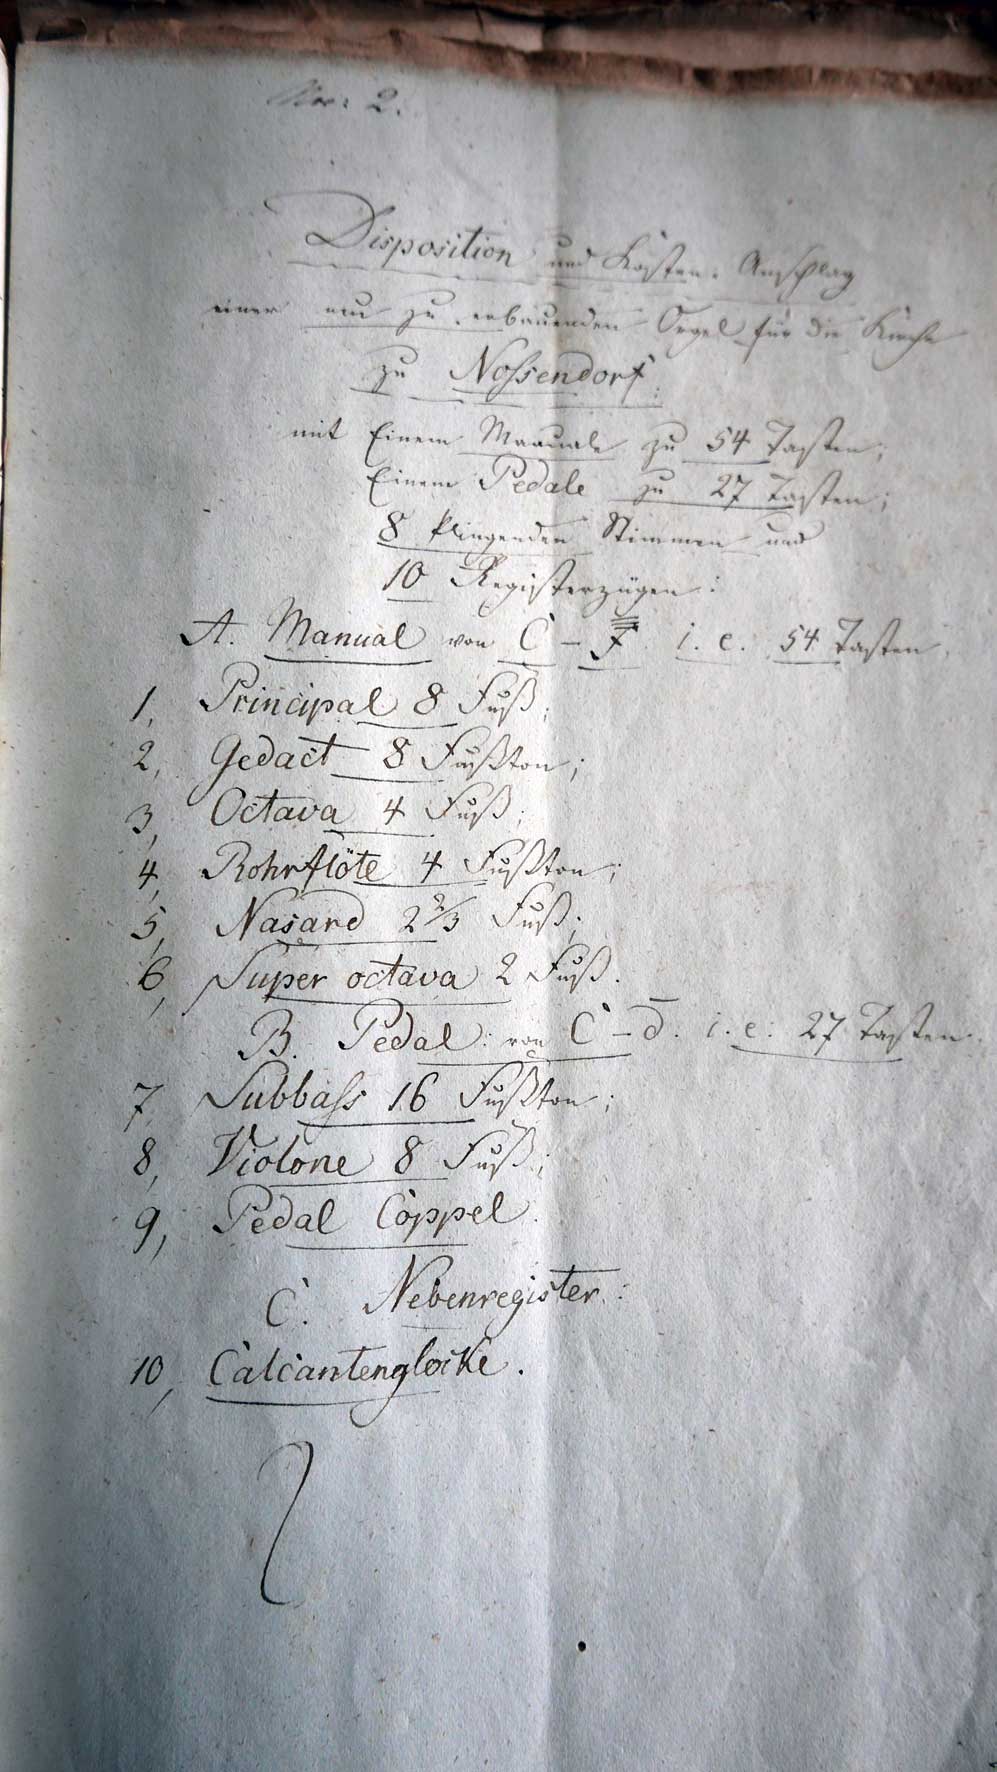 Nro: 2.
Disposition und Kosten-Anschlag
einer neu zu erbauenden Orgel für die Kirche
zu Nossendorf
mit Einem Manuale zu 54 Tasten;
Einem Pedale zu 27 Tasten;
8 klingenden Stimmen und
10 Registerzügen:
A. Manual von C – f̿̄ i. e. 54 Tasten.
1, Principal 8 Fuß;
2, Gedact 8 Fußton;
3, Octava 4 Fuß;
4, Rohrflöte 4 Fußton;
5, Nasard 2 2/3 Fuß;
6, Super octava 2 Fuß.
B. Pedal: von C – d̄. i. e. 27 Tasten.
7, Subbass 16 Fußton;
8, Violone 8 Fuß;
9, Pedal Coppel.
C. Nebenregister:
10, Calcantenglocke.